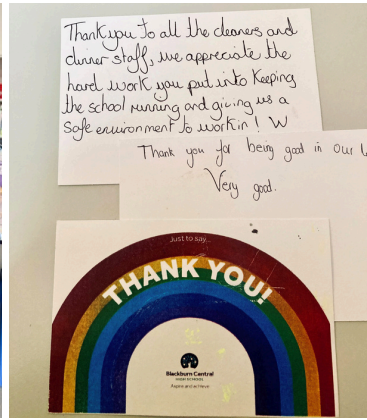 Thank you to all the cleaners and
dinner staff, we appreciate the
hard work you put into keeping
the school running and giving us a
safe environment to work in! W
Thank you for being good in our
Very good.
Just to say...
THANK YOU!
Blackburn Central
Aspire and achieve